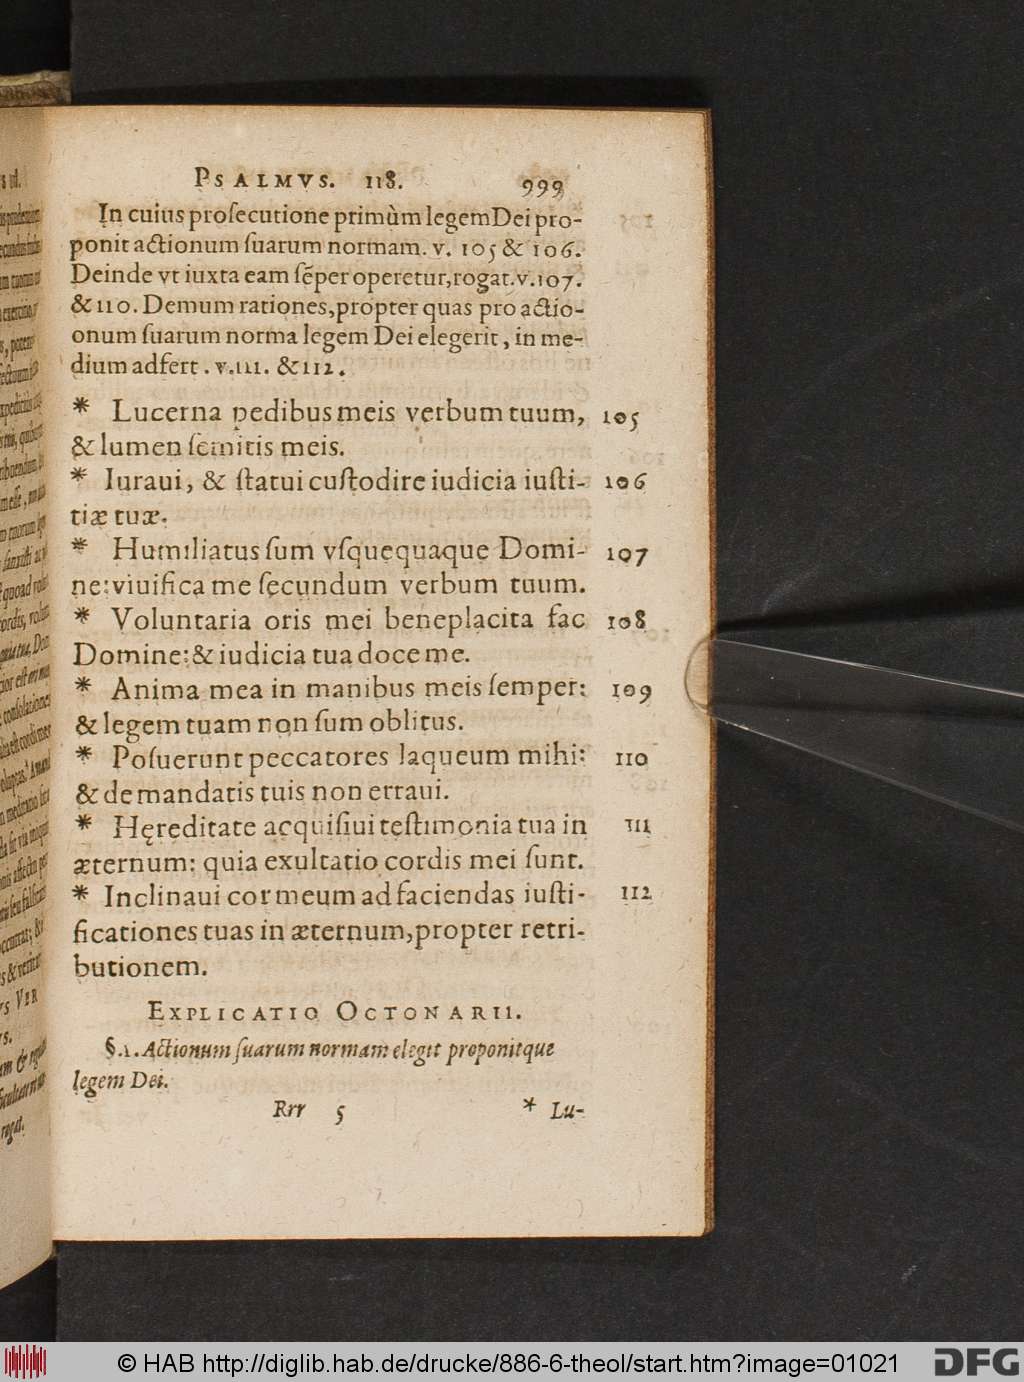 PSALMVS. 118. 999
In cuius proſecutione primùm legem Dei pro-
ponit actionum ſuarum normam. v. 105 & 106.
Deinde vt iuxta eam ſẽper operetur, rogat. v. 107.
& 110. Demum rationes, propter quas pro actio-
onum ſuarum norma legem Dei elegerit, in me-
dium adfert. v. 111. & 112.
* Lucerna pedibus meis verbum tuum, 105
& lumen ſemitis meis.
* Iuraui, & ſtatui cuſtodire iudicia iuſti- 106
tiæ tuæ.
* Humiliatus ſum vſquequaque Domi- 107
ne: viuifica me ſecundum verbum tuum.
* Voluntaria oris mei beneplacita fac 108
Domine: & iudicia tua doce me.
* Anima mea in manibus meis ſemper: 109
& legem tuam non ſum oblitus.
* Poſuerunt peccatores laqueum mihi: 110
& de mandatis tuis non erraui.
* Hęreditate acquiſiui teſtimonia tua in 111
æternum: quia exultatio cordis mei ſunt.
* Inclinaui cor meum ad faciendas iuſti- 112
ficationes tuas in æternum, propter retri-
butionem.
EXPLICATIO OCTONARII.
§. 1. Actionum ſuarum normam elegit proponitque
legem Dei.
Rrr 5 * Lu-
© HAB http://diglib.hab.de/drucke/886-6-theol/start.htm?image=01021 DFG